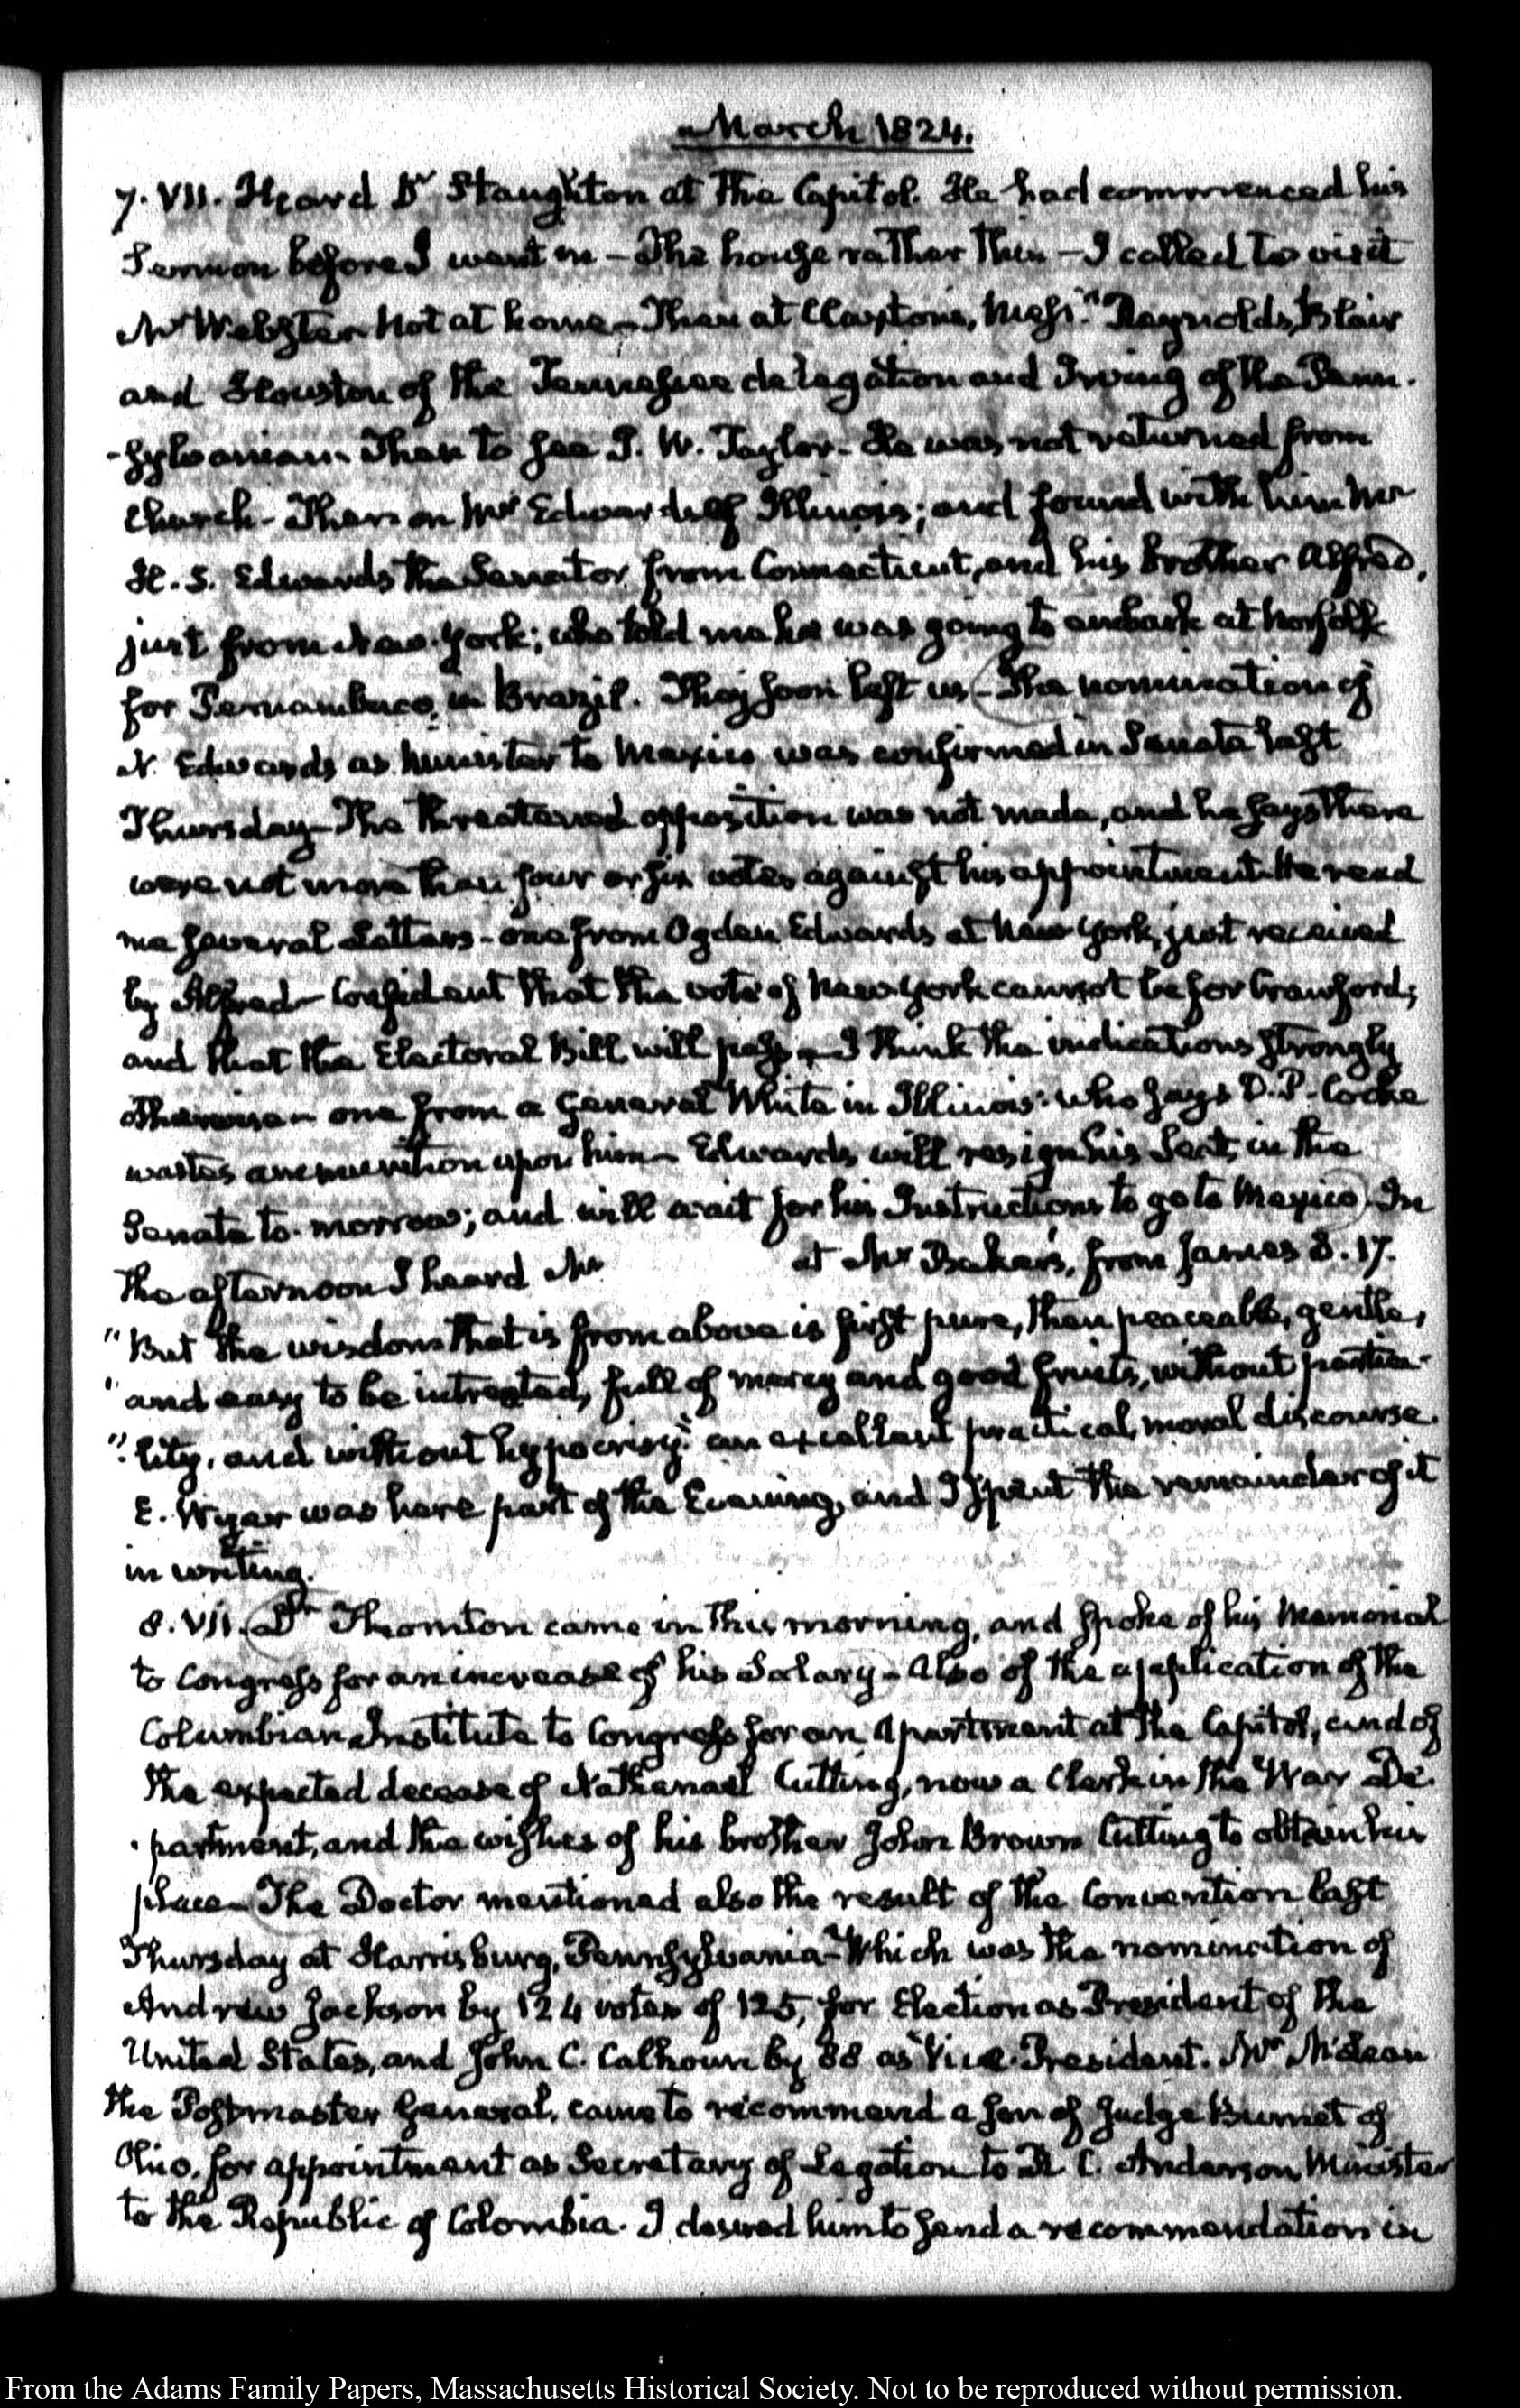 March 1824.
7. VII. Heard Dr. Staughton at the Capitol. He had commenced his
Sermon before I went in - The house rather thin - I called to visit
Mr Webster not at home - Then at Claxton's, Messrs. Reynolds, Blair
and Houston of the Tennessee delegation and Irving of the Penn-
-sylvanian. Then to see J. W. Taylor - He was not returned from
Church - Then on Mr Edwards of Illinois; and found with him Mr
H. S. Edwards the Senator from Connecticut, and his brother Alfred,
just from New-York; who told me he was going to embark at Norfolk
for Pernambuco, in Brazil. They soon left us - The nomination of
N. Edwards as Minister to Mexico was confirmed in Senate last
Thursday - The threatened opposition was not made, and he says there
were not more than four or six votes against his appointment. He read
me several Letters - one from Ogden Edwards at New York, just received
by Alfred - Confident that the vote of New York cannot be for Crawford;
and that the Electoral Bill will pass - I think the indications strongly
otherwise - one from a General White in Illinois: who says D. P. Cocke
wastes ammunition upon him - Edwards will resign his Seat, in the
Senate to-morrow; and will wait for his Instructions to go to Mexico - In
the afternoon I heard Mr at Mr Baker's, from James 3. 17.
"But the wisdom that is from above is first pure, then peaceable, gentle,
"and easy to be intreated, full of mercy and good fruits, without partia-
"-lity, and without hypocrisy." an excellent practical, moral discourse.
E. Wyer was here part of the Evening, and I spent the remainder of it
in writing.
8. VII. Dr Thornton came in this morning, and spoke of his Memorial
to Congress for an increase of his Salary - also of the application of the
Columbian Institute to Congress for an apartment at the Capitol, and of
the expected decease of Nathanael Cutting, now a Clerk in the War De-
-partment, and the wishes of his brother John Brown Cutting to obtain his
place - The Doctor mentioned also the result of the Convention last
Thursday at Harrisburg, Pennsylvania - Which was the nomination of
Andrew Jackson by 124 votes of 125, for Election as President of the
United States, and John C. Calhoun by 88 as Vice-President. Mr McLean
the Postmaster General, came to recommend a son of Judge Burnet of
Ohio, for appointment as Secretary of Legation to R. C. Anderson, Minister
to the Republic of Colombia. I desired him to send a recommendation in
From the Adams Family Papers, Massachusetts Historical Society. Not to be reproduced without permission.